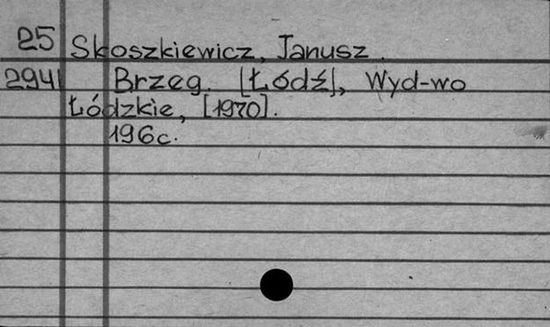 25 Skoszkiewicz, Janusz.
2941 Brzeg. [Łódź], Wyd-wo
Łódzkie, [1970].
196c.